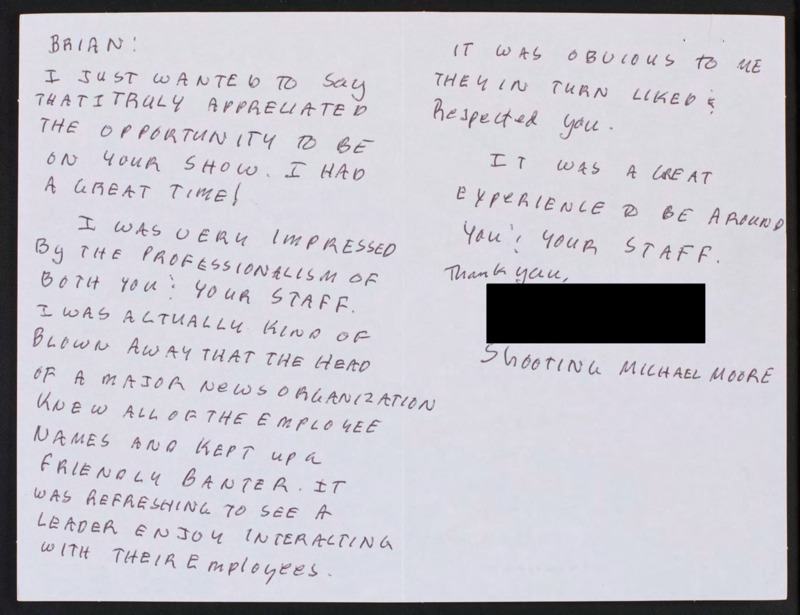 BRIAN:
I JUST WANTED TO SAY
THAT I TRULY APPRECIATED
THE OPPORTUNITY TO BE
ON YOUR SHOW. I HAD
A GREAT TIME!
I WAS VERY IMPRESSED
By THE PROFESSIONALISM OF
BOTH YOU & YOUR STAFF.
I WAS ACTUALLY KIND OF
BLOWN AWAY THAT THE HEAD
OF A MAJOR NEWS ORGANIZATION
KNEW ALL OF THE EMPLOYEE
NAMES AND KEPT up a
FRIENDLY BANTER. IT
WAS REFRESHING TO SEE A
LEADER ENJOY INTERACTING
WITH THEIR EmployEES.
IT WAS OBVIOUS to ME
THEY IN TURN LIKED &
Respected you.
IT WAS A GREAT
EXPERIENCE TO BE AROUND
YOU & YOUR STAFF.
Thank you,
SHOOTING MICHAEL MOORE